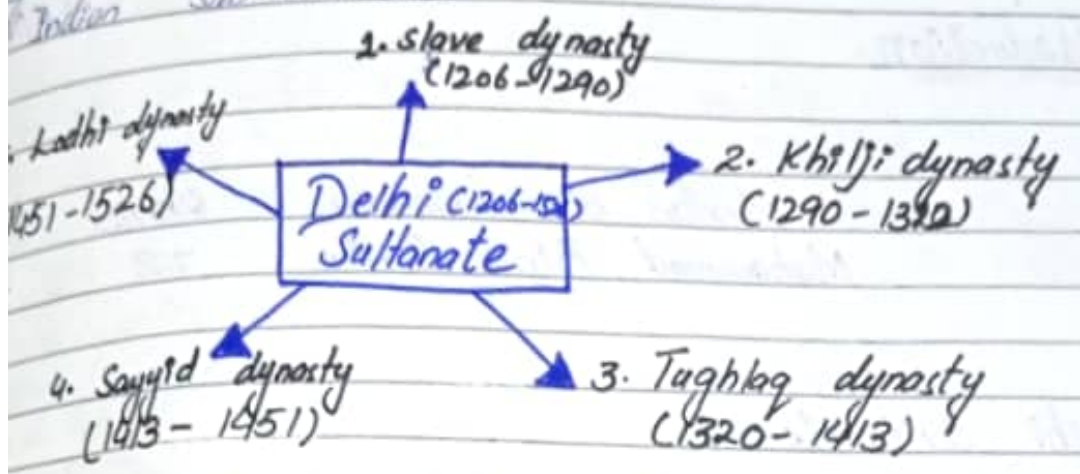 Indian
1. slave dynasty
(1206-1290)
Lodhi dynasty
451-1526)
Delhi (1206-1526)
Sultanate
2. Khilji dynasty
(1290-1320)
4. Sayyid dynasty
(1413-1451)
3. Tughlaq dynasty
(1320-1413)